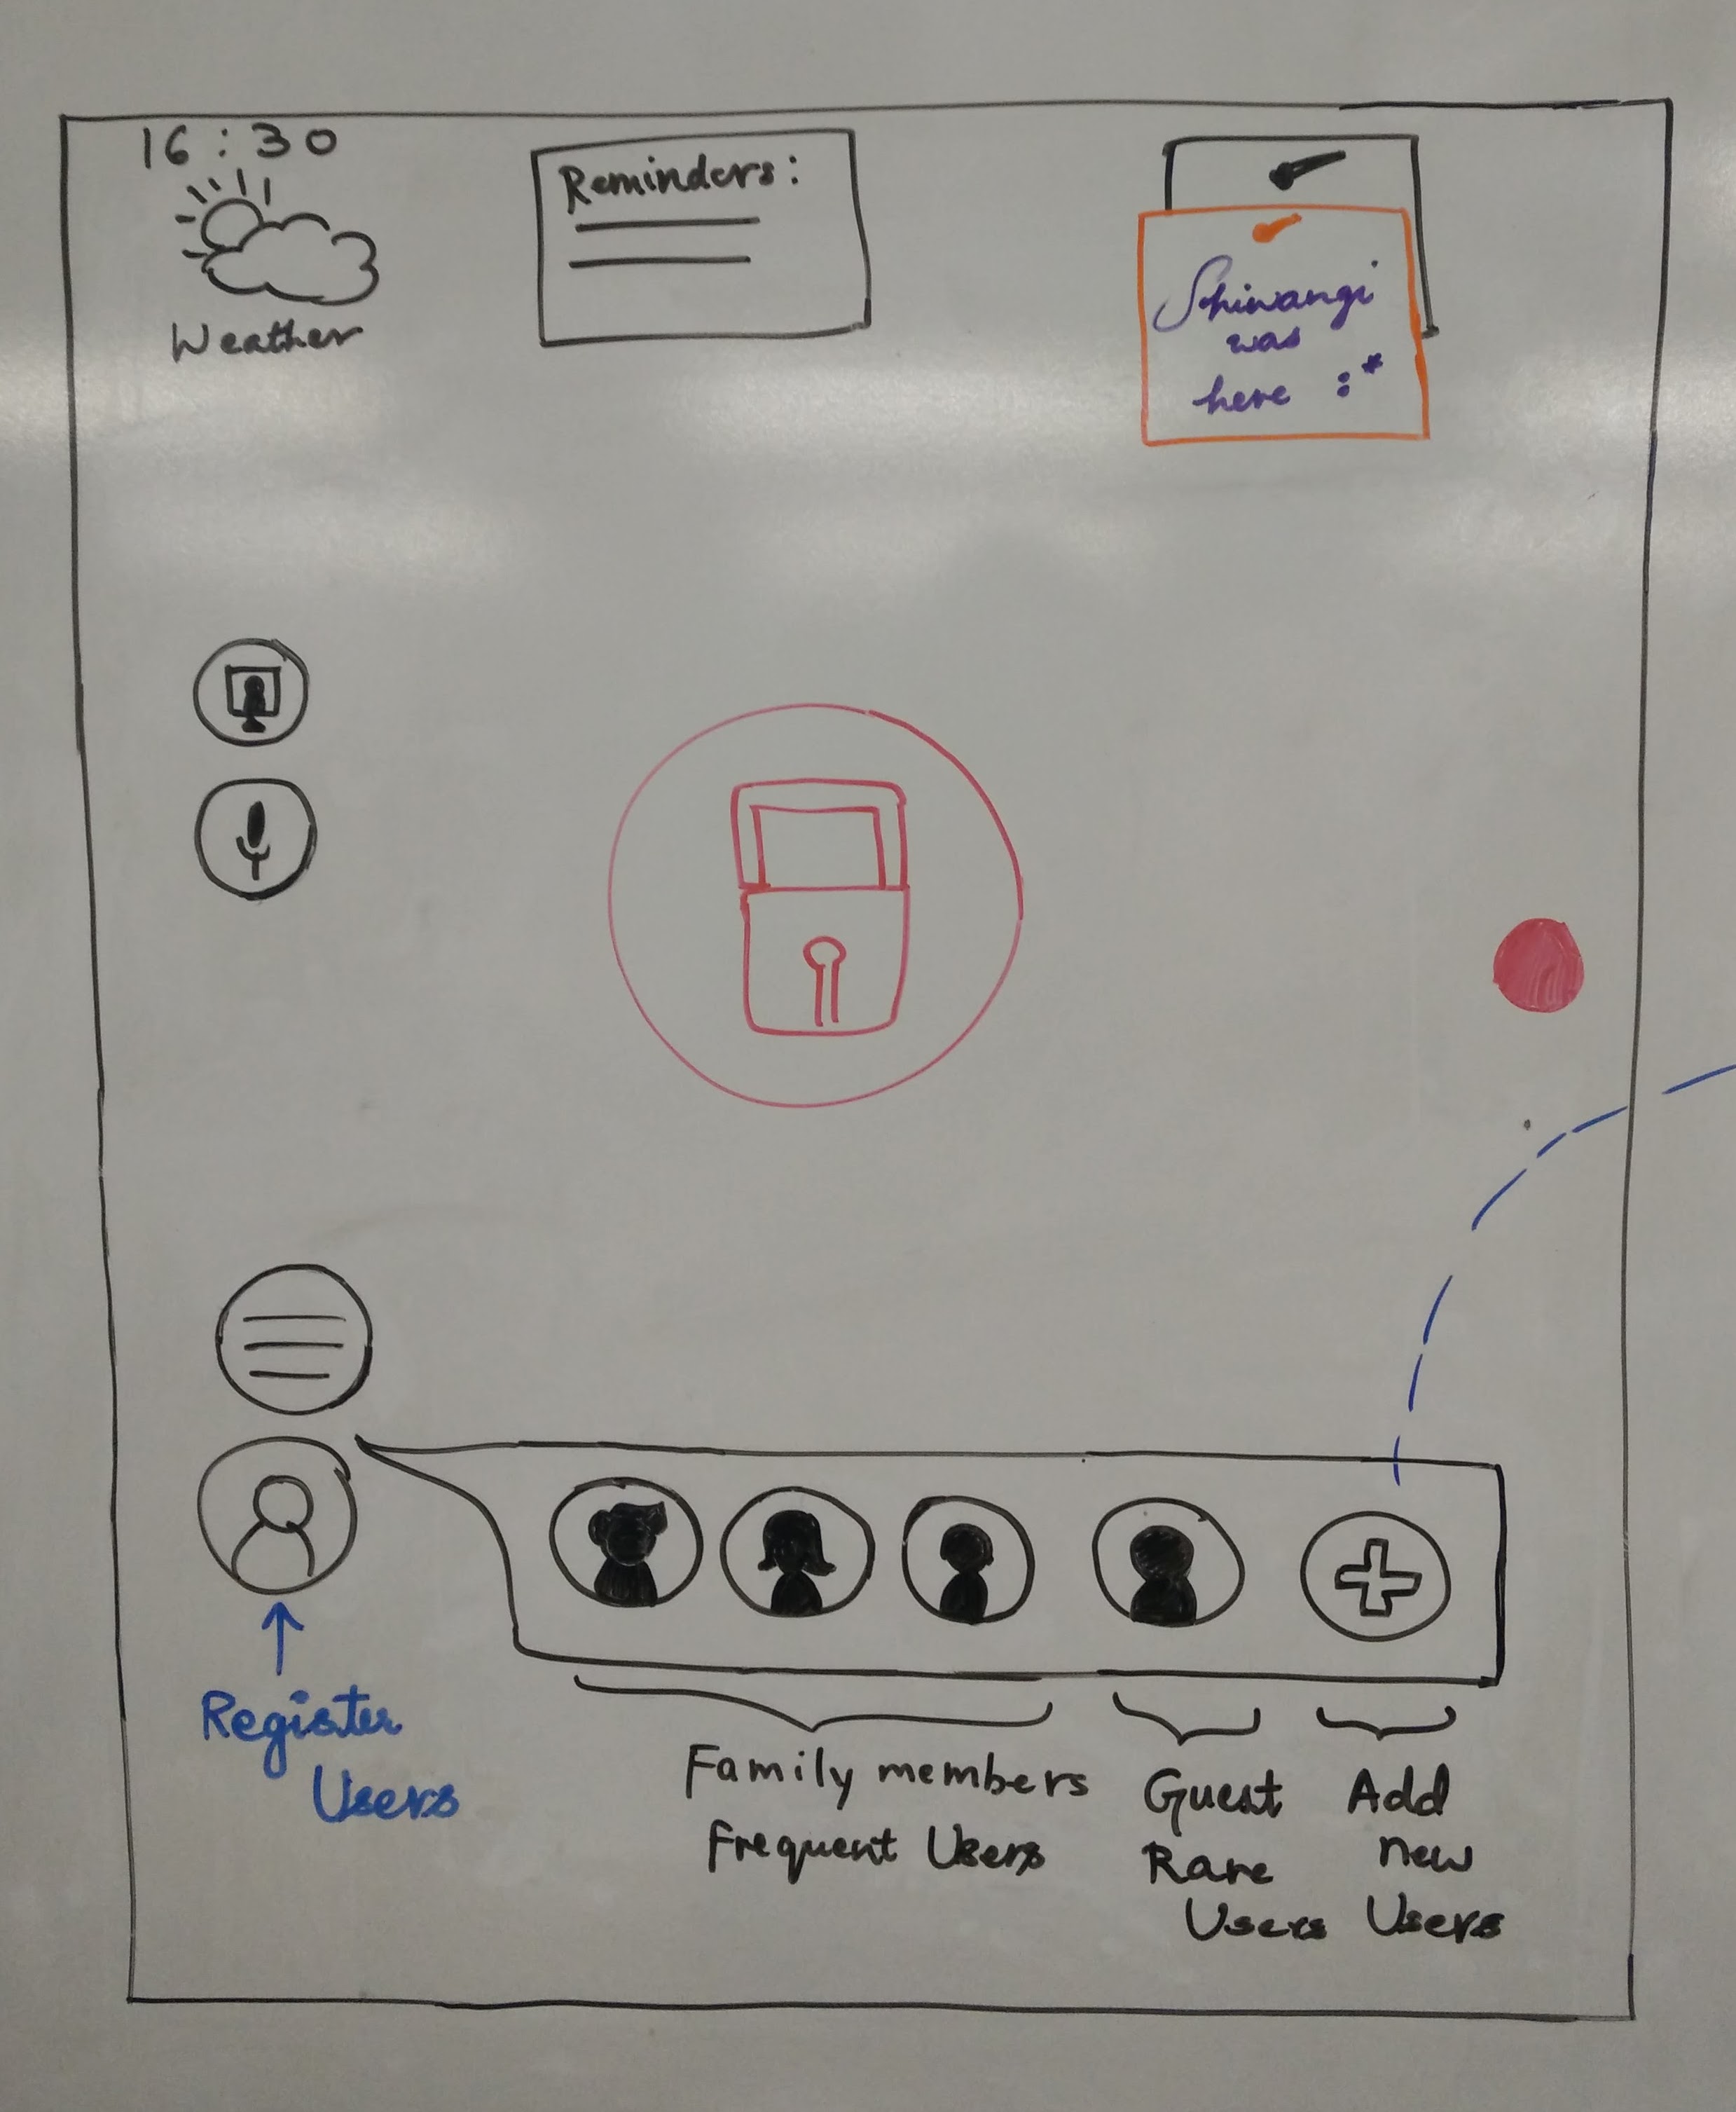 16:30
Weather
Reminders:
Shiwangi
was
here :*
Register
Users
Family members
Frequent Users
Guest
Rare
Users
Add
new
Users